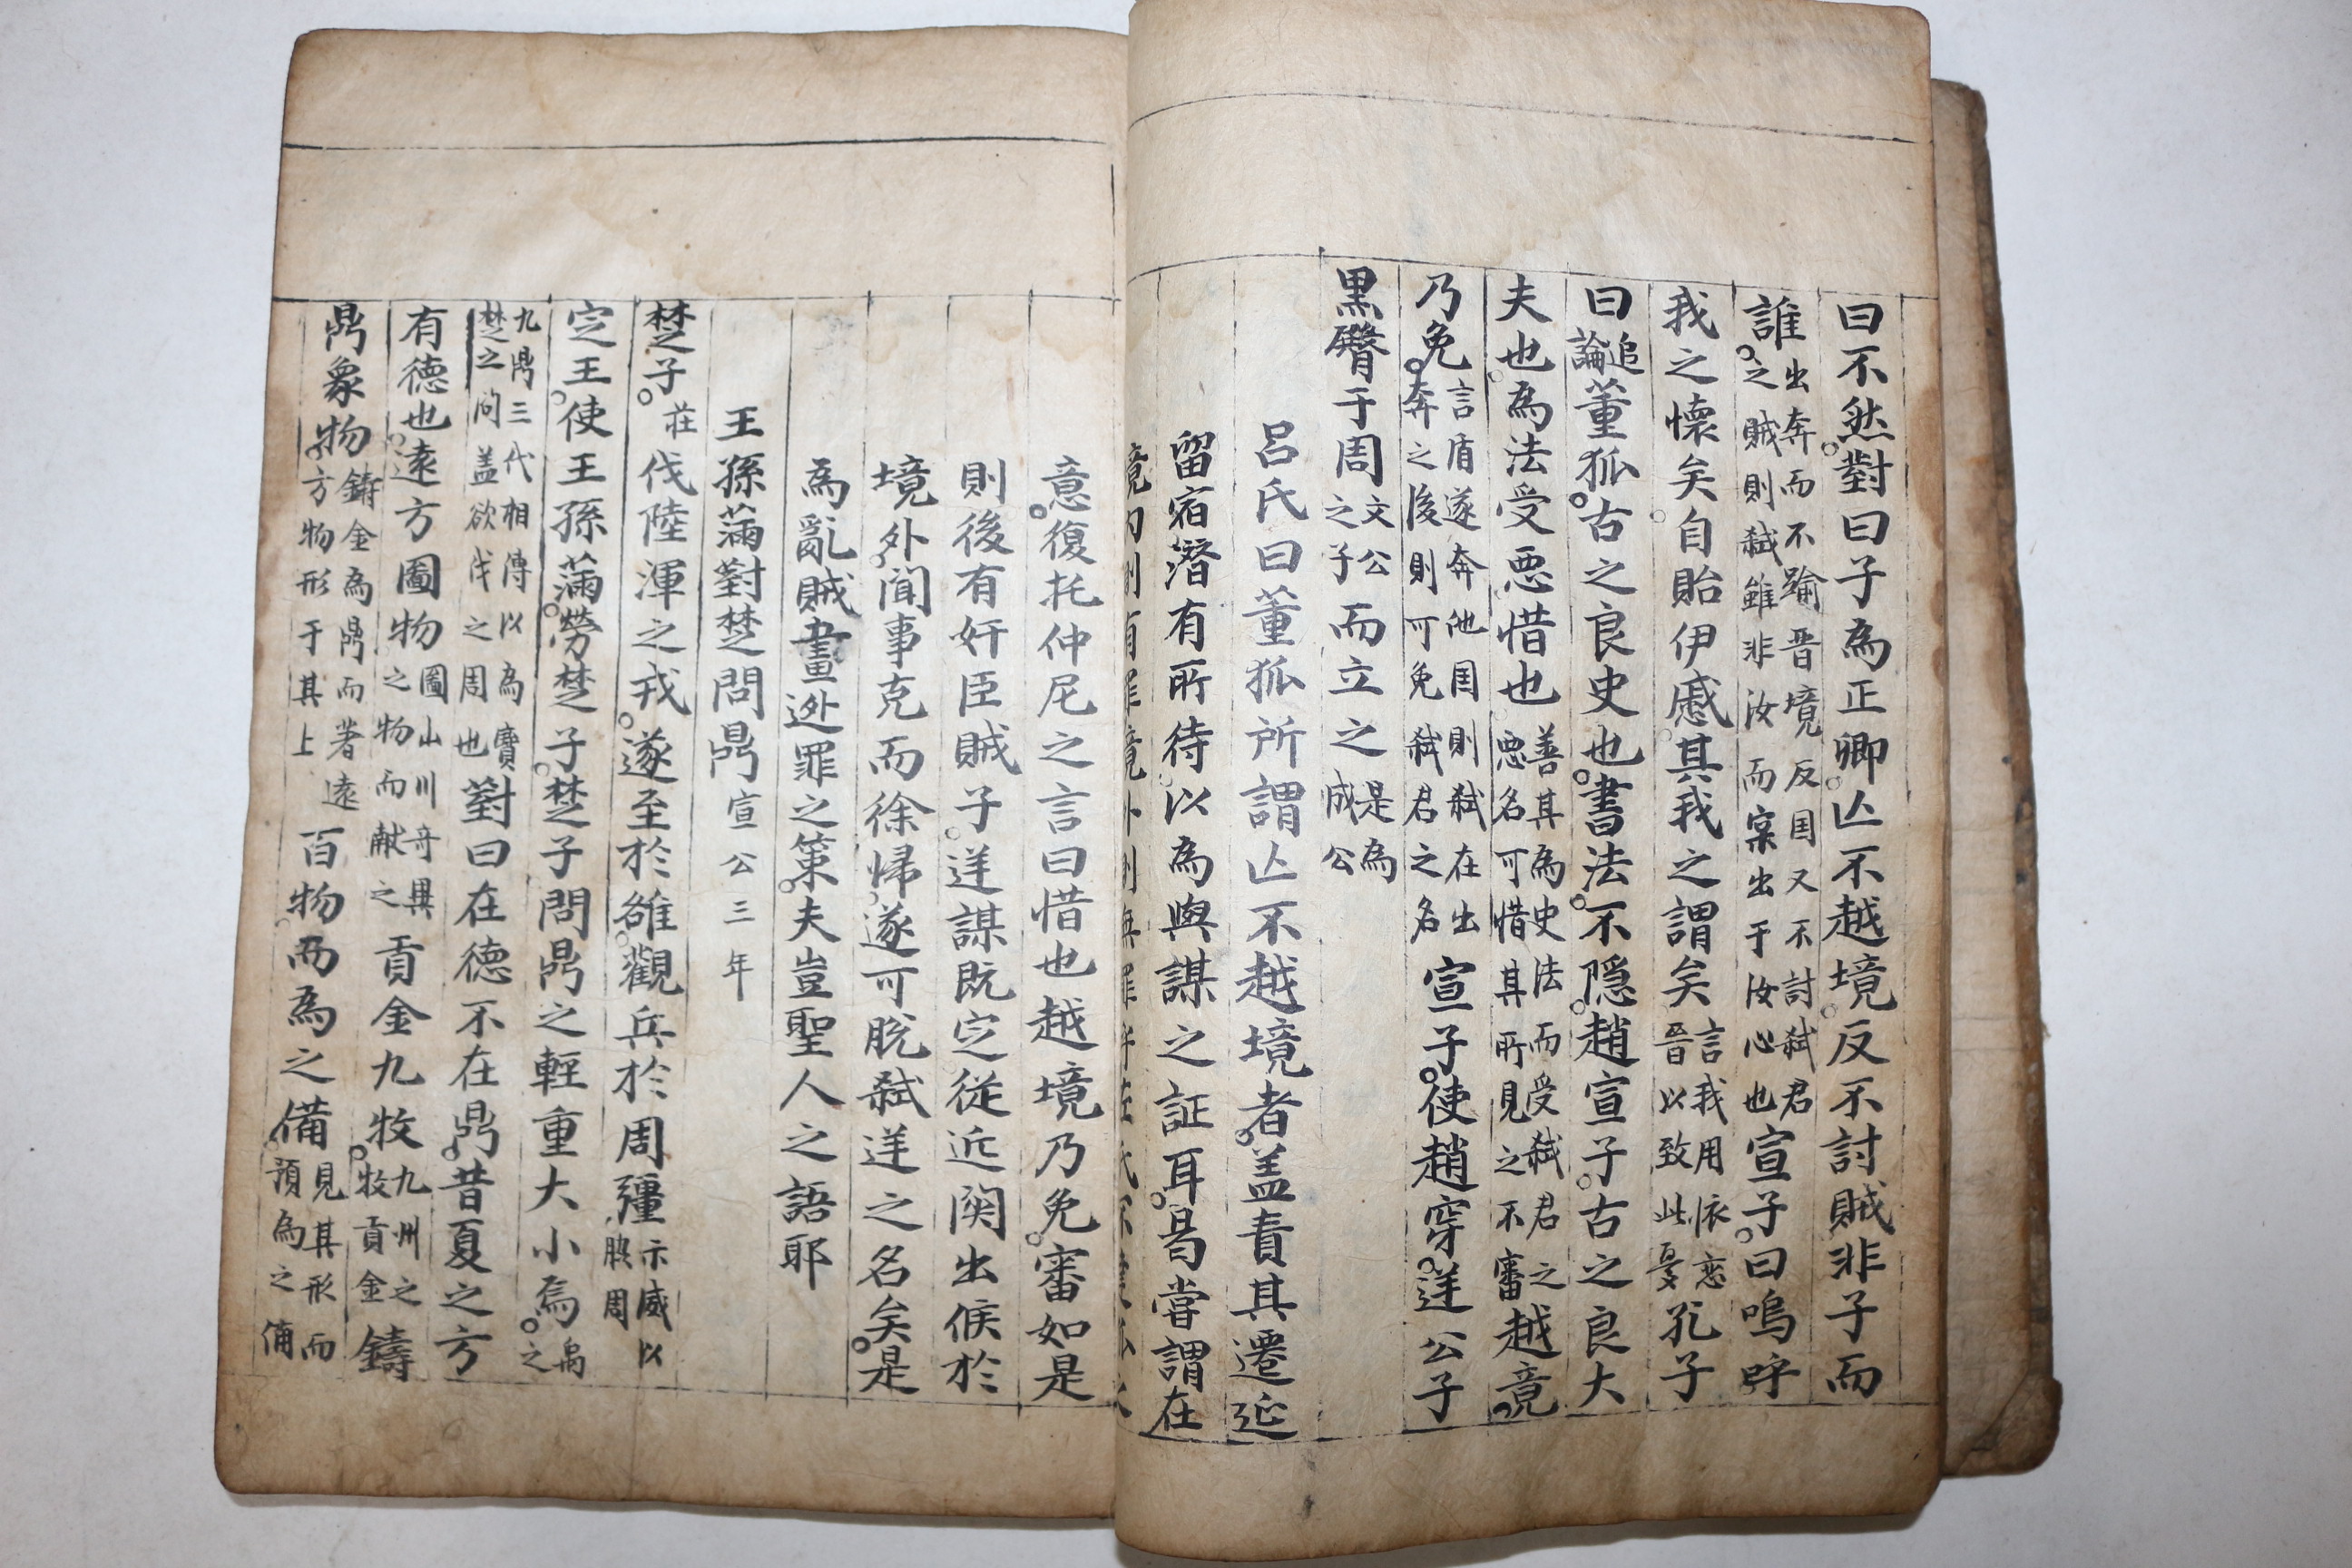 曰不然對曰子為正卿亾不越境反不討賊非子而
誰出奔而不踰晋境反囯又不討弑君之賊則弑雖非汝而寀出于汝心也宣子曰嗚呼
我之懐矣自貽伊慼其我之謂矣言我用依恋晋以致此憂孔子
曰追論董狐古之良史也書法不隠趙宣子古之良大
夫也為法受悪惜也善其為史法而受弑君之悪名可惜其所見之不審越竟
乃免言盾遂奔他囯則弑在出奔之後則可免弑君之名宣子使趙穿逆公子
黒臀于周文公之子而立之是為成公
呂氏曰董狐所謂亾不越境者盖責其遷延
留宿潜有所待以為與謀之証耳曷嘗謂在
意復托仲尼之言曰惜也越境乃免審如是
則後有奸臣賊子逆謀既定従近関出候於
境外聞事克而徐帰遂可脱弑逆之名矣是
為亂賊畫逃罪之策夫豈聖人之語耶
王孫滿對楚問鼎宣公三年
楚子荘伐陸渾之戎遂至於雒觀兵於周彊示威以脥周
定王使王孫滿勞楚子楚子問鼎之輕重大小焉禹之
九鼎三代相傳以為寶楚之問盖欲伐之周也對曰在德不在鼎昔夏之方
有德也逺方圖物圖山川奇異之物而献之貢金九牧九州之牧貢金鑄
鼎象物鑄金為鼎而著逺方物形于其上百物而為之備見其形而預為之俻